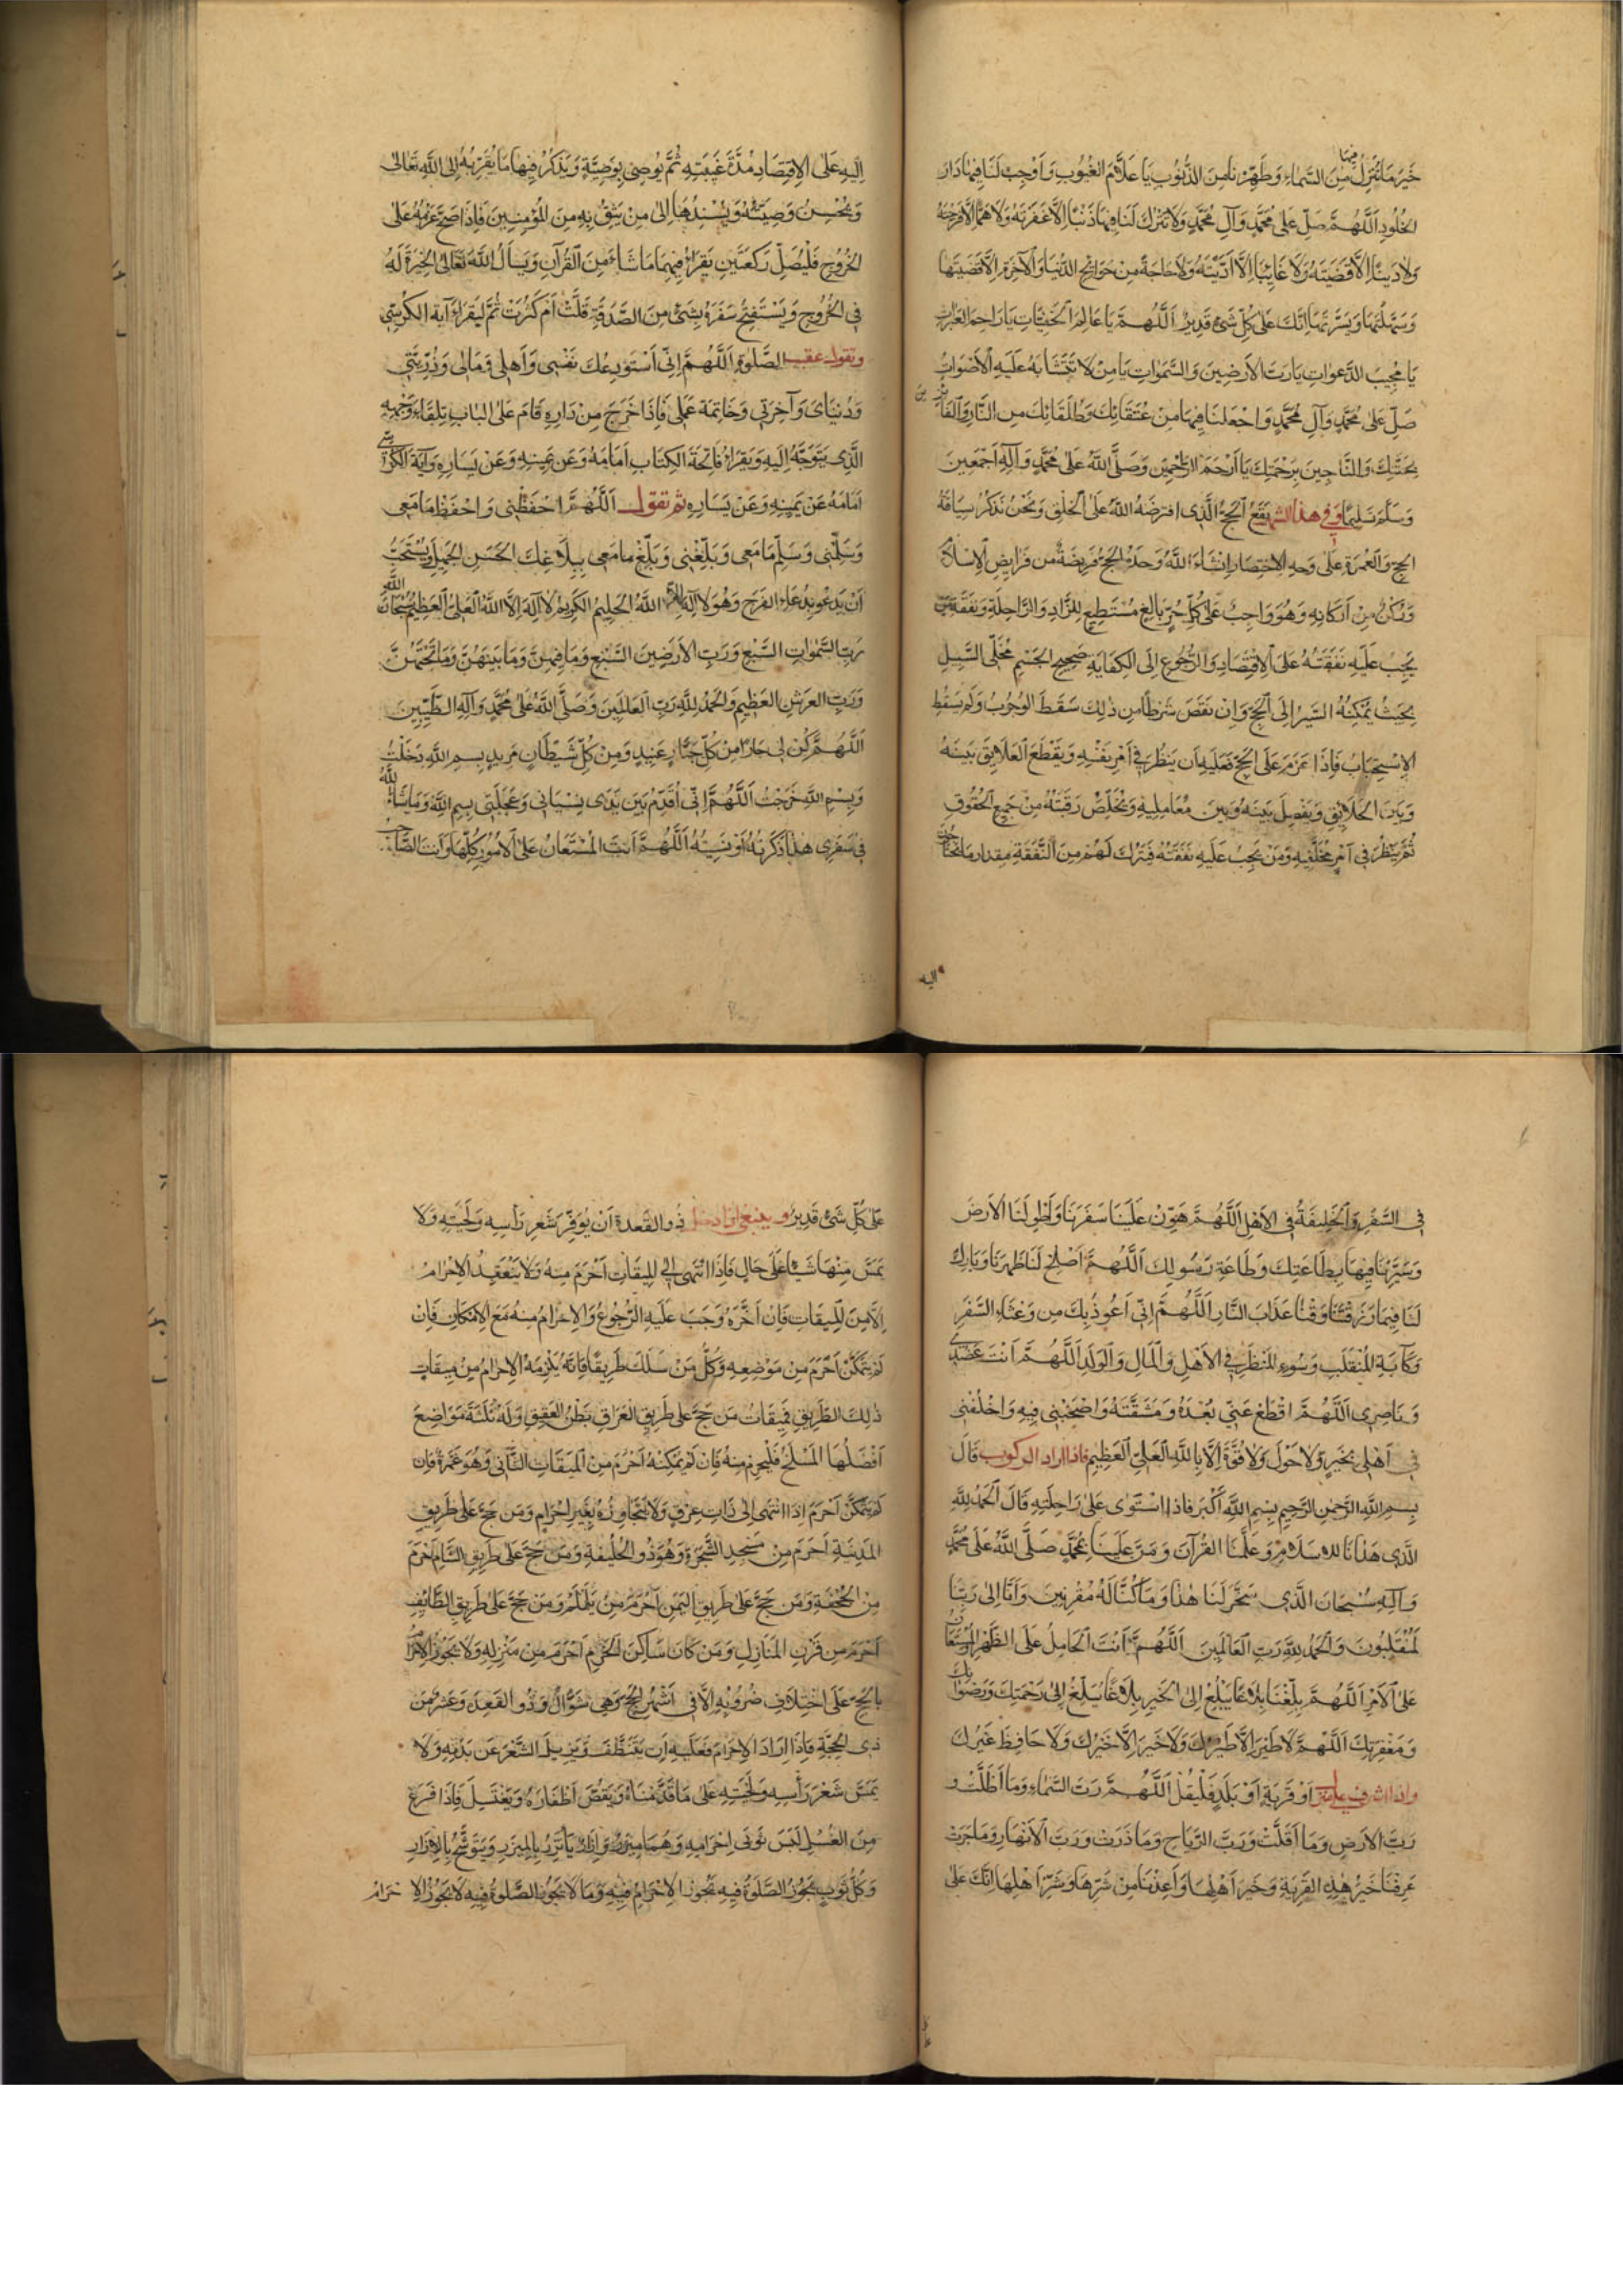 خَيْرَ مَا تُنَزِّلُ فِيهَا مِنَ السَّمَاءِ وَطَهِّرْنَا مِنَ الذُّنُوبِ يَا عَلَّامَ الغُيُوبِ وَأَوْجِبْ لَنَا فِيهَا دَارَ
الخُلُودِ اَللَّهُمَّ صَلِّ عَلَى مُحَمَّدٍ وَآلِ مُحَمَّدٍ وَلَا تَتْرُكْ لَنَا فِيهَا ذَنْبًا اِلَّا غَفَرْتَهُ وَلَا هَمًّا اِلَّا فَرَّجْتَهُ
وَلَا دَيْنًا اِلَّا قَضَيْتَهُ وَلَا غَائِبًا اِلَّا اَدَّيْتَهُ وَلَا حَاجَةً مِنْ حَوَائِجِ الدُّنْيَا وَالْآخِرَةِ اِلَّا قَضَيْتَهَا
وَسَهَّلْتَهَا وَيَسَّرْتَهَا اِنَّكَ عَلَى كُلِّ شَيْءٍ قَدِيرٌ اَللَّهُمَّ يَا عَالِمَ الْخَفِيَّاتِ يَا رَاحِمَ العَبَرَاتِ
يَا مُجِيبَ الدَّعَوَاتِ يَا رَبَّ الأَرَضِينَ وَالسَّمٰوَاتِ يَا مَنْ لَا تَتَشَابَهُ عَلَيْهِ الْأَصْوَاتُ
صَلِّ عَلَى مُحَمَّدٍ وَآلِ مُحَمَّدٍ وَاجْعَلْنَا فِيهَا مِنْ عُتَقَائِكَ وَطُلَقَائِكَ مِنَ النَّارِ وَالفَائِزِينَ
بِجَنَّتِكَ وَالنَّاجِينَ بِرَحْمَتِكَ يَا اَرْحَمَ الرَّاحِمِينَ وَصَلَّى اللّٰهُ عَلَى مُحَمَّدٍ وَآلِهِ اَجْمَعِينَ
وَسَلَّمَ تَسْلِيمًا وَفِي هذا الشهر يَقَعُ الْحَجُّ الَّذِي افْتَرَضَهُ اللّٰهُ عَلَى الْخَلْقِ وَنَحْنُ نَذْكُرُ سِيَاقَةَ
الحَجِّ وَالْعُمْرَةِ عَلَى وَجْهِ الِاخْتِصَارِ اِنْشَاءَ اللّٰهُ وَحْدَهُ الحَجُّ فَرِيضَةٌ مِنْ فَرَايِضِ الْاِسْلَامِ
وَرُكْنٌ مِنْ اَرْكَانِهِ وَهُوَ وَاجِبٌ عَلَى كُلِّ حُرٍّ بَالِغٍ مُسْتَطِيعٍ لِلزَّادِ وَالرَّاحِلَةِ وَنَفَقَةِ مَنْ
يَجِبُ عَلَيْهِ نَفَقَتُهُ عَلَى الِاقْتِصَادِ وَالرُّجُوعِ اِلَى الْكِفَايَةِ صَحِيحِ الجِسْمِ مُخَلَّى السَّبِيلِ
بِحَيْثُ يُمْكِنُهُ السَّيْرُ اِلَى الْحَجِّ وَاِنْ نَقَصَ شَرْطًا مِنْ ذٰلِكَ سَقَطَ الوُجُوبُ وَلَمْ يَسْقُطِ
الِاسْتِحْبَابُ فَاِذَا عَزَمَ عَلَى الْحَجِّ فَعَلَيْهِ اَنْ يَنْظُرَ فِي اَمْرِ نَفْسِهِ وَيَقْطَعَ العَلَايِقَ بَيْنَهُ
وَبَيْنَ الخَلَايِقِ وَيَفْصِلَ بَيْنَهُ وَبَيْنَ مُعَامِلِيهِ وَيُخَلِّصَ رَقَبَتَهُ مِنْ جَمِيعِ الحُقُوقِ
ثُمَّ يَنْظُرَ فِي اَمْرِ مُخَلَّفِيهِ وَمَنْ يَجِبُ عَلَيْهِ نَفَقَتُهُ فَيَتْرُكَ لَهُمْ مِنَ النَّفَقَةِ مِقْدَارَ مَا يَحْتَاجُونَ
اليه
اِلَيْهِ عَلَى الِاقْتِصَادِ مُدَّةَ غَيْبَتِهِ ثُمَّ يُوصِي بِوَصِيَّةٍ وَيَذْكُرُ فِيهَا مَا يُقَرِّبُهُ اِلَى اللّٰهِ تَعَالَى
وَيُحْسِنُ وَصِيَّتَهُ وَيُسْنِدُهَا اِلَى مَنْ يَثِقُ بِهِ مِنَ المُؤْمِنِينَ فَاِذَا صَحَّ عَزْمُهُ عَلَى
الخُرُوجِ فَلْيُصَلِّ رَكْعَتَيْنِ يَقْرَأُ فِيهِمَا مَا شَاءَ مِنَ القُرْآنِ وَيَسْأَلُ اللّٰهَ تَعَالَى الخِيَرَةَ لَهُ
فِي الخُرُوجِ وَيَسْتَفْتِحُ سَفَرَهُ بِشَيْءٍ مِنَ الصَّدَقَةِ قَلَّتْ اَمْ كَثُرَتْ ثُمَّ لْيَقْرَأْ آيَةَ الكُرْسِيِّ
وتقول عقيب الصَّلٰوةِ اَللّٰهُمَّ اِنِّي اَسْتَوْدِعُكَ نَفْسِي وَاَهْلِي وَمَالِي وَذُرِّيَّتِي
وَدُنْيَايَ وَآخِرَتِي وَخَاتِمَةَ عَمَلِي فَاِذَا خَرَجَ مِنْ دَارِهِ قَامَ عَلَى البَابِ تِلْقَاءَ وَجْهِهِ
الَّذِي يَتَوَجَّهُ اِلَيْهِ وَيَقْرَأُ فَاتِحَةَ الكِتَابِ اَمَامَهُ وَعَنْ يَمِينِهِ وَعَنْ يَسَارِهِ وَآيَةَ الكُرْسِيِّ
اَمَامَهُ عَنْ يَمِينِهِ وَعَنْ يَسَارِهِ ثم تقول اَللّٰهُمَّ احْفَظْنِي وَاحْفَظْ مَا مَعِي
وَسَلِّمْنِي وَسَلِّمْ مَا مَعِي وَبَلِّغْنِي وَبَلِّغْ مَا مَعِي بِبَلَاغِكَ الحَسَنِ الجَمِيلِ وَيُسْتَحَبُّ
اَنْ يَدْعُوَ بِدُعَاءِ الفَرَجِ وَهُوَ لَا اِلٰهَ اِلَّا اللّٰهُ الحَلِيمُ الكَرِيمُ لَا اِلٰهَ اِلَّا اللّٰهُ العَلِيُّ العَظِيمُ سُبْحَانَ اللّٰهِ
رَبِّ السَّمٰوَاتِ السَّبْعِ وَرَبِّ الأَرَضِينَ السَّبْعِ وَمَا فِيهِنَّ وَمَا بَيْنَهُنَّ وَمَا تَحْتَهُنَّ
وَرَبِّ العَرْشِ العَظِيمِ وَالحَمْدُ لِلّٰهِ رَبِّ العَالَمِينَ وَصَلَّى اللّٰهُ عَلَى مُحَمَّدٍ وَآلِهِ الطَّيِّبِينَ
اَللّٰهُمَّ كُنْ لِي جَارًا مِنْ كُلِّ جَبَّارٍ عَنِيدٍ وَمِنْ كُلِّ شَيْطَانٍ مَرِيدٍ بِسْمِ اللّٰهِ دَخَلْتُ
وَبِسْمِ اللّٰهِ خَرَجْتُ اَللّٰهُمَّ اِنِّي اُقَدِّمُ بَيْنَ يَدَيْ نِسْيَانِي وَعَجَلَتِي بِسْمِ اللّٰهِ وَمَا شَاءَ اللّٰهُ
فِي سَفَرِي هٰذَا ذَكَرْتُهُ اَوْ نَسِيتُهُ اَللّٰهُمَّ اَنْتَ المُسْتَعَانُ عَلَى الْاُمُورِ كُلِّهَا وَاَنْتَ الصَّاحِبُ
فِي السَّفَرِ وَالْخَلِيفَةُ فِي الْاَهْلِ اَللّٰهُمَّ هَوِّنْ عَلَيْنَا سَفَرَنَا وَاطْوِ لَنَا الْاَرْضَ
وَسَيِّرْنَا فِيهَا بِطَاعَتِكَ وَطَاعَةِ رَسُولِكَ اَللّٰهُمَّ اَصْلِحْ لَنَا ظَهْرَنَا وَبَارِكْ
لَنَا فِيمَا رَزَقْتَنَا وَقِنَا عَذَابَ النَّارِ اَللّٰهُمَّ اِنِّي اَعُوذُ بِكَ مِنْ وَعْثَاءِ السَّفَرِ
وَكَآبَةِ المُنْقَلَبِ وَسُوءِ المَنْظَرِ فِي الْاَهْلِ وَالْمَالِ وَالْوَلَدِ اَللّٰهُمَّ اَنْتَ عَضُدِي
وَنَاصِرِي اَللّٰهُمَّ اقْطَعْ عَنِّي بُعْدَهُ وَمَشَقَّتَهُ وَاصْحَبْنِي فِيهِ وَاخْلُفْنِي
فِي اَهْلِي بِخَيْرٍ وَلَا حَوْلَ وَلَا قُوَّةَ اِلَّا بِاللّٰهِ العَلِيِّ العَظِيمِ فاذا اراد الركوب قَالَ
بِسْمِ اللّٰهِ الرَّحْمٰنِ الرَّحِيمِ بِسْمِ اللّٰهِ اللّٰهُ اَكْبَرُ فَاِذَا اسْتَوَى عَلَى رَاحِلَتِهِ قَالَ اَلْحَمْدُ لِلّٰهِ
الَّذِي هَدَانَا لِلْاِسْلَامِ وَعَلَّمَنَا القُرْآنَ وَمَنَّ عَلَيْنَا بِمُحَمَّدٍ صَلَّى اللّٰهُ عَلَى مُحَمَّدٍ
وَآلِهِ سُبْحَانَ الَّذِي سَخَّرَ لَنَا هٰذَا وَمَا كُنَّا لَهُ مُقْرِنِينَ وَاِنَّا اِلَى رَبِّنَا
لَمُنْقَلِبُونَ وَالْحَمْدُ لِلّٰهِ رَبِّ العَالَمِينَ اَللّٰهُمَّ اَنْتَ الْحَامِلُ عَلَى الظَّهْرِ المُسْتَعَانُ
عَلَى الْاَمْرِ اَللّٰهُمَّ بَلِّغْنَا بَلَاغًا يَبْلُغُ اِلَى الْخَيْرِ بَلَاغًا يَبْلُغُ اِلَى رَحْمَتِكَ وَرِضْوَانِكَ
وَمَغْفِرَتِكَ اَللّٰهُمَّ لَا طَيْرَ اِلَّا طَيْرُكَ وَلَا خَيْرَ اِلَّا خَيْرُكَ وَلَا حَافِظَ غَيْرُكَ
واذا اشرف على منزل اَوْ قَرْيَةٍ اَوْ بَلَدٍ فَلْيَقُلْ اَللّٰهُمَّ رَبَّ السَّمَاءِ وَمَا اَظَلَّتْ وَ
رَبَّ الْاَرْضِ وَمَا اَقَلَّتْ وَرَبَّ الرِّيَاحِ وَمَا ذَرَتْ وَرَبَّ الْاَنْهَارِ وَمَا جَرَتْ
عَرِّفْنَا خَيْرَ هٰذِهِ القَرْيَةِ وَخَيْرَ اَهْلِهَا وَاَعِذْنَا مِنْ شَرِّهَا وَشَرِّ اَهْلِهَا اِنَّكَ عَلَى
عَلَى كُلِّ شَيْءٍ قَدِيرٌ و ينبغي اذا دخل ذُو القَعْدَةِ اَنْ يُوَفِّرَ شَعْرَ رَأْسِهِ وَلِحْيَتِهِ وَلَا
يَمَسَّ مِنْهَا شَيْئًا عَلَى حَالٍ فَاِذَا انْتَهَى اِلَى المِيقَاتِ اَحْرَمَ مِنْهُ وَلَا يَنْعَقِدُ الْاِحْرَامُ
اِلَّا مِنَ المِيقَاتِ فَاِنْ اَخَّرَهُ وَجَبَ عَلَيْهِ الرُّجُوعُ وَالْاِحْرَامُ مِنْهُ مَعَ الْاِمْكَانِ فَاِنْ
لَمْ يَتَمَكَّنْ اَحْرَمَ مِنْ مَوْضِعِهِ وَكُلُّ مَنْ سَلَكَ طَرِيقًا فَاِنَّهُ يَلْزَمُهُ الْاِحْرَامُ مِنْ مِيقَاتِ
ذٰلِكَ الطَّرِيقِ فَمِيقَاتُ مَنْ حَجَّ عَلَى طَرِيقِ العِرَاقِ بَطْنُ العَقِيقِ وَلَهُ ثَلٰثَةُ مَوَاضِعَ
اَفْضَلُهَا المَسْلَخُ فَلْيُحْرِمْ مِنْهُ فَاِنْ لَمْ يُمْكِنْهُ اَحْرَمَ مِنَ المِيقَاتِ الثَّانِي وَهُوَ غَمْرَةُ فَاِنْ
لَمْ يَتَمَكَّنْ اَحْرَمَ اِذَا انْتَهَى اِلَى ذَاتِ عِرْقٍ وَلَا يَتَجَاوَزُهُ بِغَيْرِ اِحْرَامٍ وَمَنْ حَجَّ عَلَى طَرِيقِ
المَدِينَةِ اَحْرَمَ مِنْ مَسْجِدِ الشَّجَرَةِ وَهُوَ ذُو الحُلَيْفَةِ وَمَنْ حَجَّ عَلَى طَرِيقِ الشَّامِ اَحْرَمَ
مِنَ الجُحْفَةِ وَمَنْ حَجَّ عَلَى طَرِيقِ اليَمَنِ اَحْرَمَ مِنْ يَلَمْلَمَ وَمَنْ حَجَّ عَلَى طَرِيقِ الطَّائِفِ
اَحْرَمَ مِنْ قَرْنِ المَنَازِلِ وَمَنْ كَانَ سَاكِنَ الحَرَمِ اَحْرَمَ مِنْ مَنْزِلِهِ وَلَا يَجُوزُ الْاِحْرَامُ
بِالحَجِّ عَلَى اخْتِلَافِ ضُرُوبِهِ اِلَّا فِي اَشْهُرِ الحَجِّ وَهِيَ شَوَّالٌ وَذُو القَعْدَةِ وَعَشْرٌ مِنْ
ذِي الحِجَّةِ فَاِذَا اَرَادَ الْاِحْرَامَ فَعَلَيْهِ اَنْ يَتَنَظَّفَ وَيُزِيلَ الشَّعْرَ عَنْ بَدَنِهِ وَلَا
يَمَسَّ شَعْرَ رَأْسِهِ وَلِحْيَتِهِ عَلَى مَا قَدَّمْنَاهُ وَيَقُصَّ اَظْفَارَهُ وَيَغْتَسِلَ فَاِذَا فَرَغَ
مِنَ الغُسْلِ لَبِسَ ثَوْبَيْ اِحْرَامِهِ وَهُمَا مِئْزَرٌ وَاِزَارٌ يَأْتَزِرُ بِالمِئْزَرِ وَيَتَوَشَّحُ بِالْاِزَارِ
وَكُلُّ ثَوْبٍ يَجُوزُ الصَّلٰوةُ فِيهِ يَجُوزُ الْاِحْرَامُ فِيهِ وَمَا لَا يَجُوزُ الصَّلٰوةُ فِيهِ لَا يَجُوزُ الْاِحْرَامُ